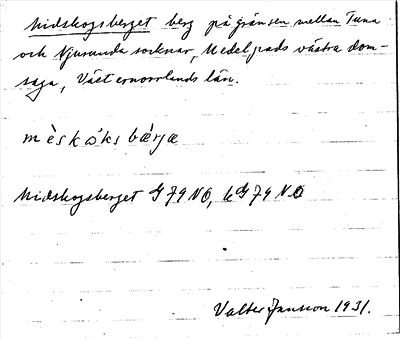 Midskogsberget berg på gränsen mellan Tuna
och Njurunda socknar, Medelpads västra dom-
saga, Västernorrlands län.
mèskòksbærjæ
Midskogsberget G 79 NO, G 79 NO
Valter Jansson 1931.